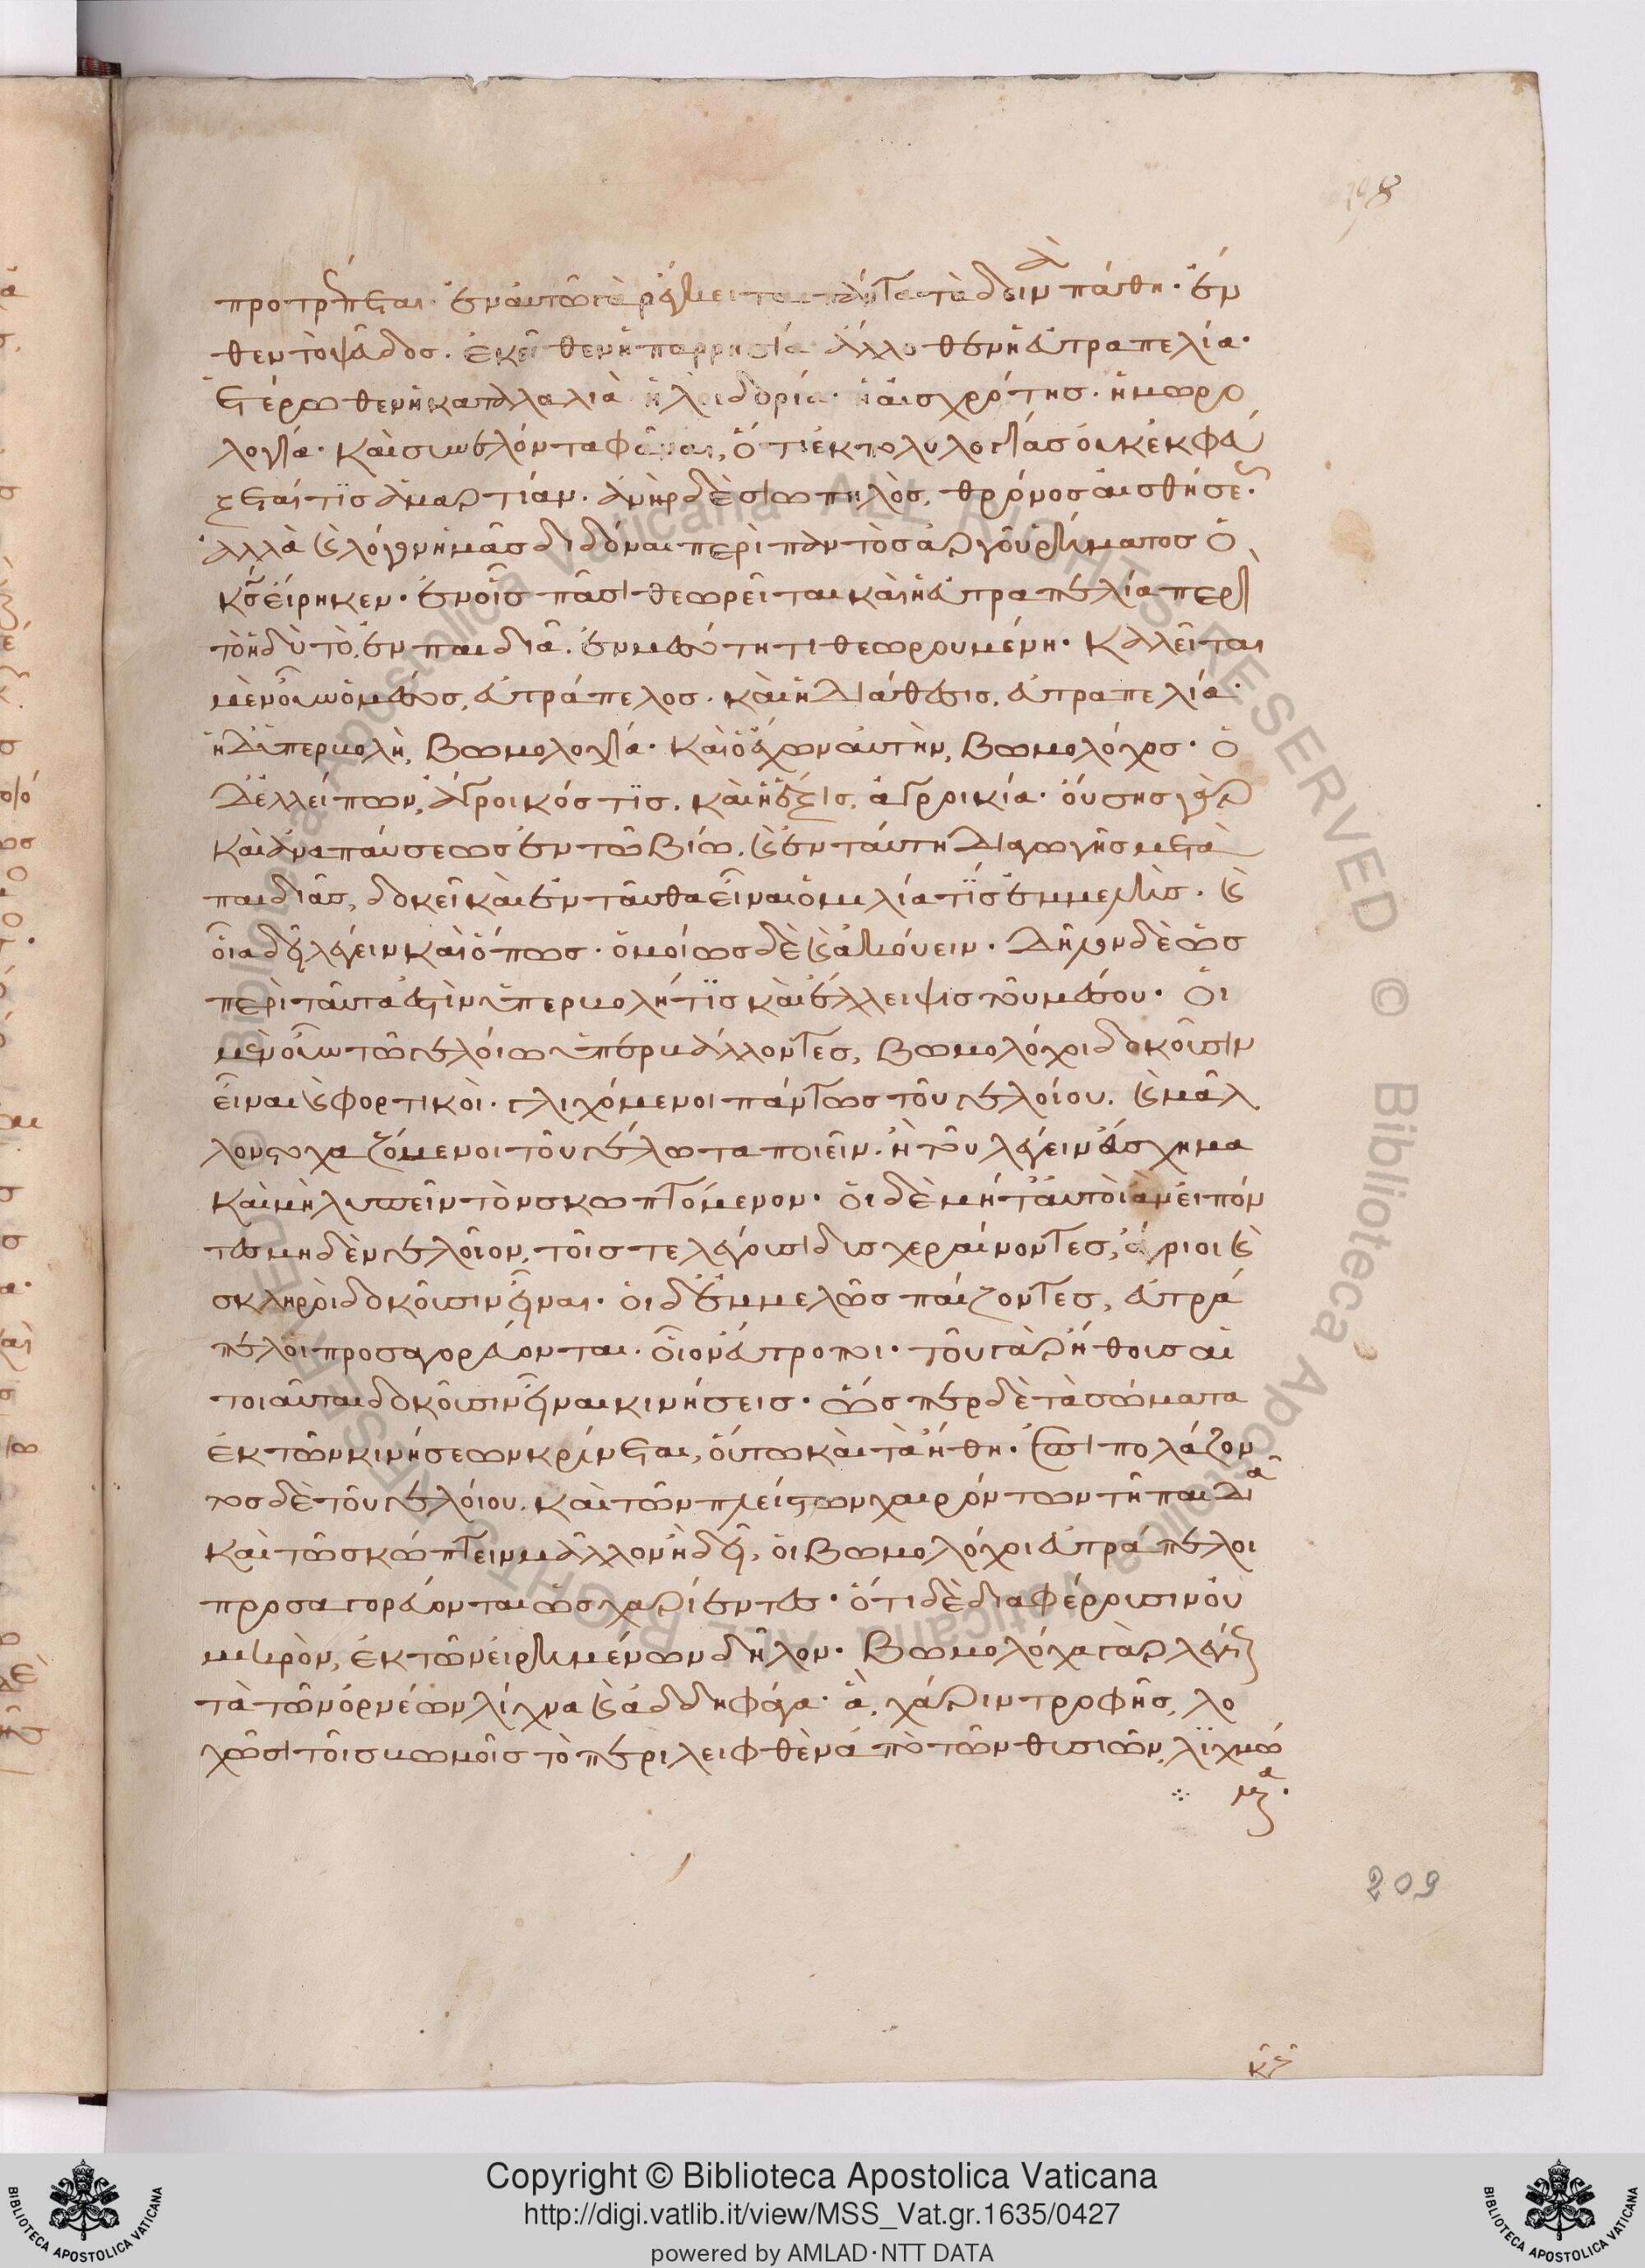 198
προτρέπεται· ἐν αὐτῶ γὰρ ἔχει τὰ πάντα τὰ δεινὰ πάθη· ἔν
θεν τὸ ψεῦδος· ἐκεῖθεν ἡ παρρησία· ἄλλοθεν ἡ εὐτραπελία·
ἑτέρωθεν ἡ καταλαλιὰ ἡ λοιδορία· ἡ αἰσχρότης· ἡ μωρο
λογία· καὶ συνελόντα φάναι, ὅτι ἐκ πολυλογίας οὐκ ἐκφεύ
ξεταί τις ἁμαρτίαν· ἀνὴρ δὲ σιωπηλὸς, θρόνος αἰσθήσεως·
ἀλλὰ καὶ λόγον ἡμᾶς διδόναι περὶ παντὸς ἀργοῦ ῥήματος ὁ
κς εἴρηκεν· ἐν οἷς πᾶσι θεωρεῖται καὶ ἡ εὐτραπελία περὶ
τὸ ἡδὺ τὸ ἐν παιδιᾶ· ἐν μεσότητι θεωρουμένη· καλεῖται
μὲν οὖν ὁ μέσος, εὐτράπελος· καὶ ἡ διάθεσις, εὐτραπελία·
ἡ δ' ὑπερβολὴ, βωμολοχία· καὶ ὁ ἔχων αὐτὴν, βωμολόχος· ὁ
δ' ἐλλείπων, ἀγροικός τις· καὶ ἡ ἕξις, ἀγροικία· οὔσης γὰρ
καὶ ἀναπαύσεως ἐν τῶ βίω· καὶ ἐν ταύτη διαγωγῆς μετὰ
παιδιᾶς, δοκεῖ καὶ ἐνταῦθα εἶναι ὁμιλία τίς ἐμμελὴς· καὶ
οἷα δεῖ λέγειν καὶ ὅπως· ὁμοίως δὲ καὶ ἀκούειν· δῆλον δὲ ὡς
περὶ ταῦτα ἐστὶν ὑπερβολή τις καὶ ἔλλειψις τοῦ μέσου· οἱ
μὲν οὖν τῶ γελοίω ὑπερβάλλοντες, βωμολόχοι δοκοῦσιν
εἶναι καὶ φορτικοὶ· γλιχόμενοι πάντως τοῦ γελοίου· καὶ μᾶλ
λον στοχαζόμενοι τοῦ γέλωτα ποιεῖν· ἢ τοῦ λέγειν εὔσχημα
καὶ μὴ λυπεῖν τὸν σκωπτόμενον· οἱ δὲ μήτ' αὐτοὶ ἂν εἰπόν
τες μηδὲν γελοῖον, τοῖς τε λέγουσι δυσχεραίνοντες, ἄγριοι καὶ
σκληροὶ δοκοῦσιν εἶναι· οἱ δ' ἐμμελῶς παίζοντες, εὐτρά
πελοι προσαγορεύονται· οἷον εὔτροποι· τοῦ γὰρ ἤθους αἱ
τοιαῦται δοκοῦσιν εἶναι κινήσεις· ὥσπερ δὲ τὰ σώματα
ἐκ τῶν κινήσεων κρίνεται, οὕτω καὶ τὰ ἤθη· ἐπιπολάζον
τος δὲ τοῦ γελοίου· καὶ τῶν πλείστων χαιρόντων τῆ παιδιᾶ
καὶ τῶ σκώπτειν μᾶλλον ἢ δεῖ, οἱ βωμολόχοι εὐτράπελοι
προσαγορεύονται ὡς χαρίεντες· ὅτι δὲ διαφέρουσιν οὐ
μικρὸν, ἐκ τῶν εἰρημένων δῆλον· βωμολόχα γὰρ λέγεται
τὰ τῶν ὀρνέων λίχνα καὶ ἀδδηφάγα· ἃ, χάριν τροφῆς, λο
χῶσι τοῖς βωμοῖς τὸ περιλειφθὲν ἀπὸ τῶν θυσιῶν, λιχνώ
μενα·
209
κζ